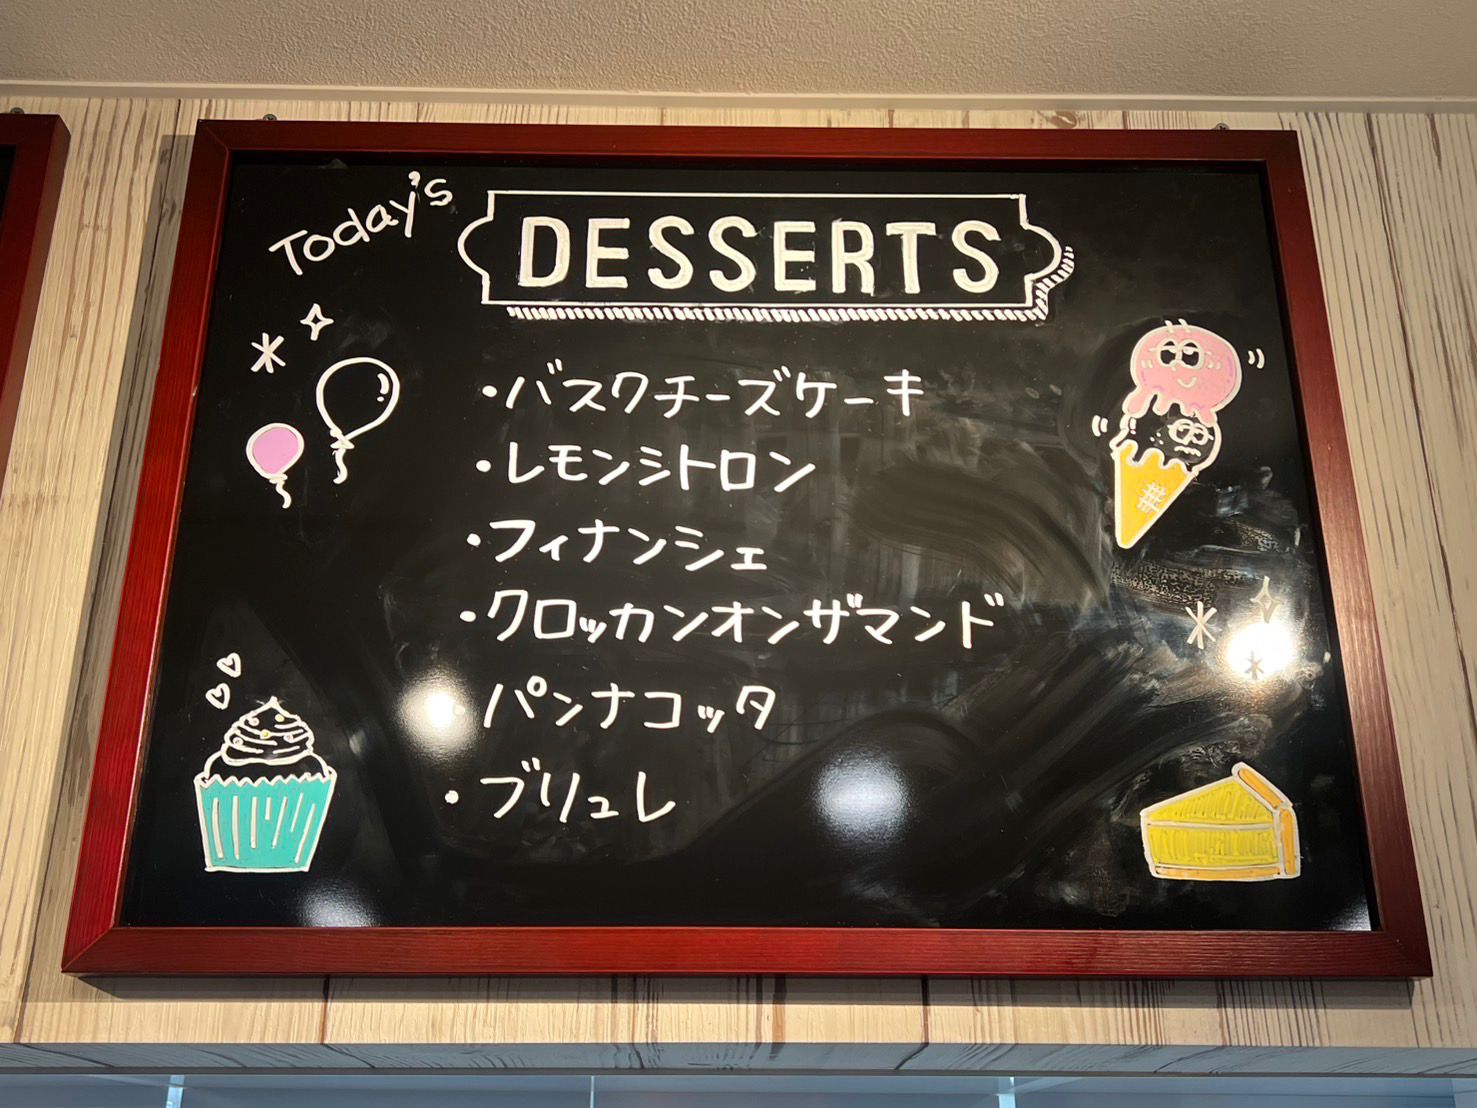 Today's
DESSERTS
・バスクチーズケーキ
・レモンシトロン
・フィナンシェ
・クロッカンオンザマンド
・パンナコッタ
・ブリュレ